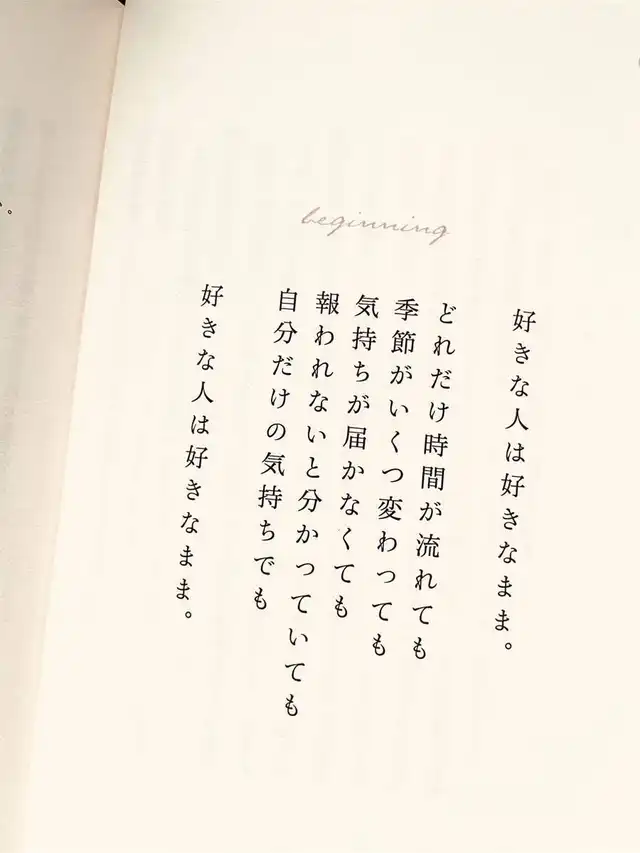 beginning
好きな人は好きなまま。
どれだけ時間が流れても
季節がいくつ変わっても
気持ちが届かなくても
報われないと分かっていても
自分だけの気持ちでも
好きな人は好きなまま。